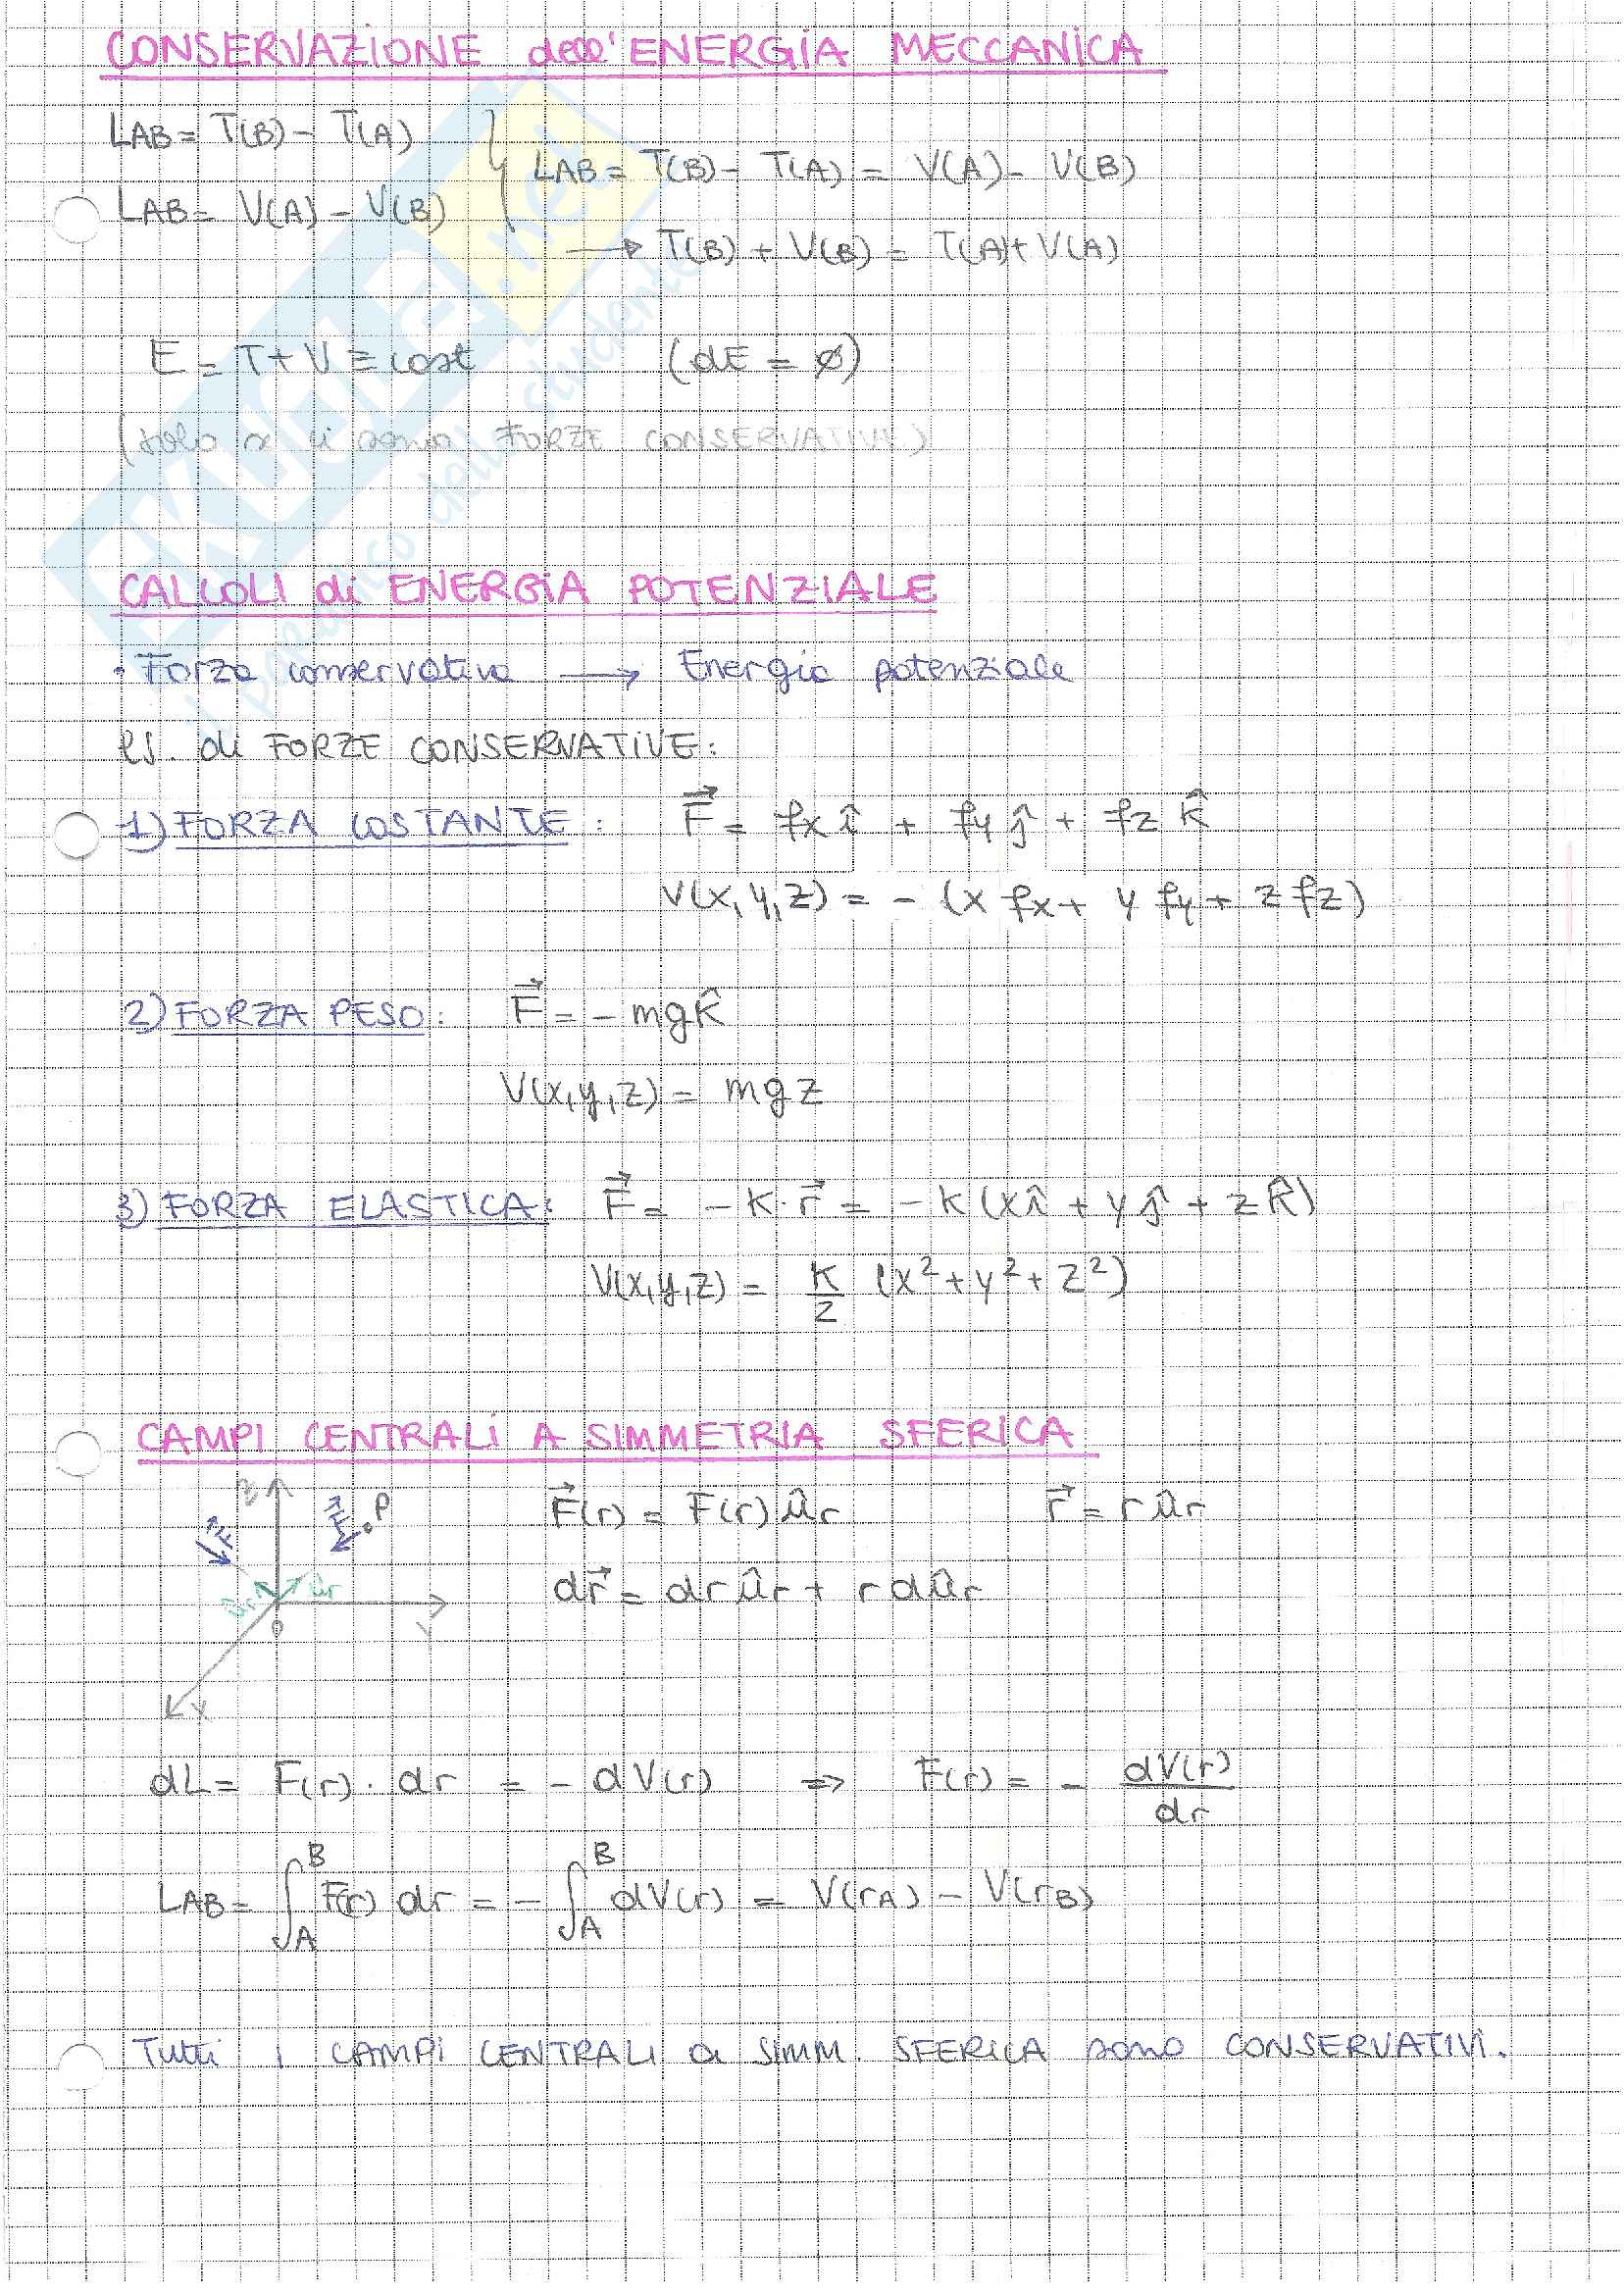 CONSERVAZIONE dell'ENERGIA MECCANICA
LAB = T(B) - T(A)
LAB = V(A) - V(B)
LAB = T(B) - T(A) = V(A) - V(B)
→ T(B) + V(B) = T(A) + V(A)
E = T + V ≡ cost (dE = ∅)
(solo se ci sono FORZE CONSERVATIVE)
CALCOLI di ENERGIA POTENZIALE
• Forza conservativa → Energia potenziale
es. di FORZE CONSERVATIVE:
1) FORZA COSTANTE: F⃗ = fx î + fy ĵ + fz k̂
V(x,y,z) = - (x fx + y fy + z fz)
2) FORZA PESO: F⃗ = - mg k̂
V(x,y,z) = mgz
3) FORZA ELASTICA: F⃗ = - K · r⃗ = - K (x î + y ĵ + z k̂)
V(x,y,z) = K/2 (x² + y² + z²)
CAMPI CENTRALI A SIMMETRIA SFERICA
z F⃗ F⃗ P
ûr ûr
O y
x
F⃗(r) = F(r) ûr r⃗ = r ûr
dr⃗ = dr ûr + r dûr
dL = F(r) · dr = - dV(r) ⇒ F(r) = - dV(r)/dr
LAB = ∫_A^B F(r) dr = - ∫_A^B dV(r) = V(rA) - V(rB)
Tutti i CAMPI CENTRALI a SIMM. SFERICA sono CONSERVATIVI.
SKUOLA.net
il paradiso dello studente